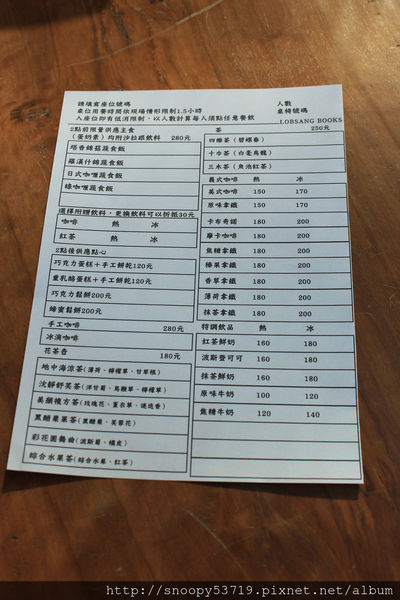 請填寫座位號碼
桌位用餐時間依現場情形限制1.5小時
入座位即有低消限制，以人數計算每人須點任意餐飲
人數
桌椅號碼
LOBSANG BOOKS
2點前限量供應主食
(蛋奶素) 均附沙拉跟飲料 280元
塔香錦菇蔬食飯
羅漢什錦蔬食飯
日式咖哩蔬食飯
綠咖哩蔬食飯
選擇附贈飲料，更換飲料可以折抵30元
咖啡 熱 冰
紅茶 熱 冰
2點後供應點心
巧克力蛋糕+手工餅乾120元
重乳酪蛋糕+手工餅乾120元
巧克力鬆餅200元
蜂蜜鬆餅200元
手工咖啡 280元
冰滴咖啡
花茶香 180元
地中海涼茶(薄荷、檸檬草、甘草根)
沈靜舒芙茶(洋甘菊、馬鞭草、檸檬草)
美顏複方茶(玫瑰花、薰衣草、迷迭香)
黑醋栗果茶(黑醋栗、芙蓉花)
彩花圓舞曲(波斯菊、橘皮)
綜合水果茶(綜合水果、紅茶)
茶 250元
四維茶 (碧螺春)
十力茶 (白毫烏龍)
三木茶 (魚池紅茶)
義式咖啡 熱 冰
美式咖啡 150 170
原味拿鐵 150 170
卡布奇諾 180 200
摩卡咖啡 180 200
焦糖拿鐵 180 200
榛果拿鐵 180 200
香草拿鐵 180 200
薄荷拿鐵 180 200
抹茶拿鐵 180 200
特調飲品 熱 冰
紅茶鮮奶 160 180
波斯登可可 160 180
抹茶鮮奶 160 180
原味牛奶 100 120
焦糖牛奶 120 140
http://snoopy53719.pixnet.net/album